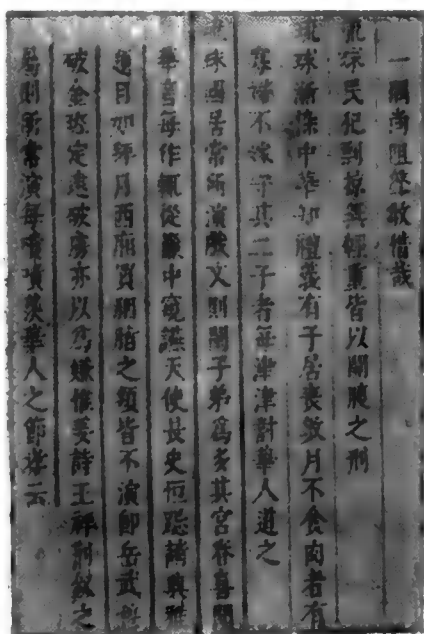 一隅尚阻聲教惜哉
琉球民犯剽掠無輕重皆以開腹之刑
琉球漸染中華知禮義有子居喪數月不食肉者有
寡婦不嫁守其二子者每津津對華人道之
琉球國居常所演戲文則閩子弟爲多其宮眷喜聞
華音每作輒從簾中窺讌天使長史恒跽請典雅
題目如拜月西廂買胭脂之類皆不演即岳武穆
破金班定遠破虜亦以爲嫌惟姜詩王祥荊釵之
屬則所常演每嘖嘖羨華人之節孝云